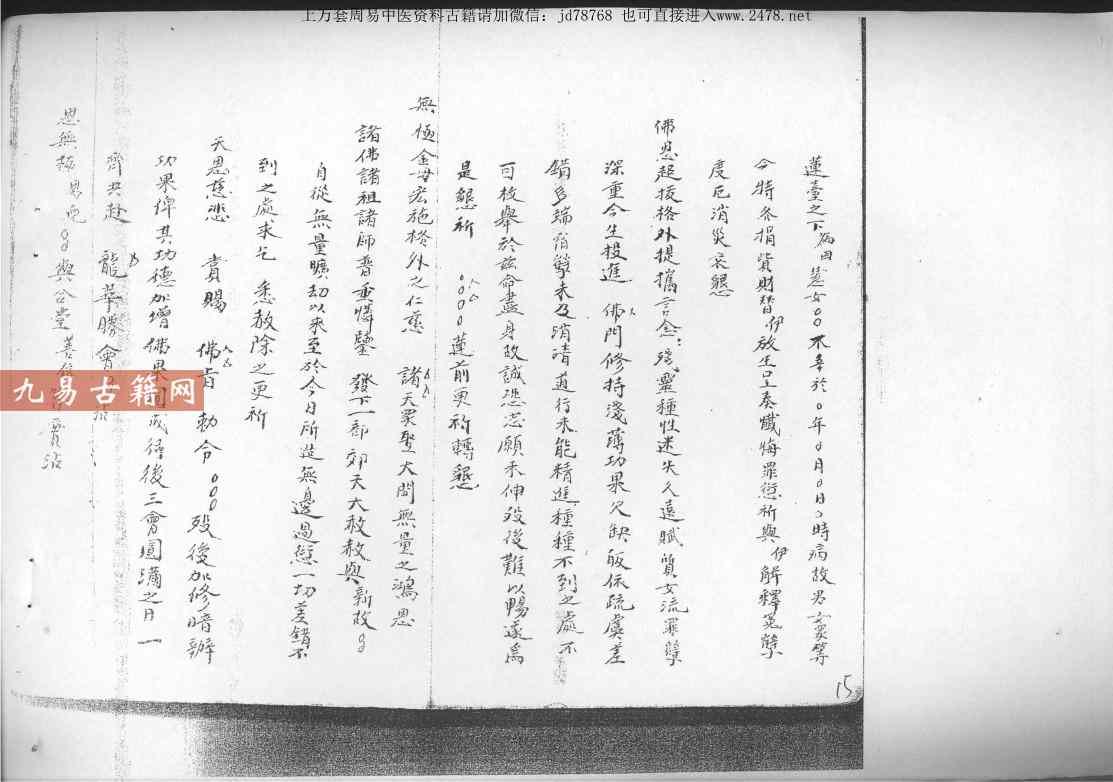 上万套周易中医资料古籍请加微信：jd78768 也可直接进入www.2478.net
蓮臺之下病因 信女○○不幸於○年○月○日○時病故男女衆等
今特备捐資財替伊放生上奏懺悔罪愆祈與伊解釋冤孽
度厄消災哀懇
佛慈超拔格外提攜言念：殘靈種性迷失久遠賦質女流罪孽
深重今生投進 佛門修持淺薄功果欠缺皈依疏虞差
錯多端宿孽未及消清道行未能精進種種不到之處不
可枚舉於兹命盡身故誠恐志願未伸殁後難以暢遂爲
是懇祈 ○○○蓮前更祈轉懇
無極金母宏施格外之仁慈 諸天衆聖大開無量之鴻恩
諸佛諸祖諸師普垂憐鑒 發下一部郊天大赦赦與新故○
自從無量曠劫以來至於今日所造無邊過愆一切差錯不
到之處求乞 悉赦除之更祈
天恩慈悲 賞賜 佛旨勅令○○○殁後加修暗辦
功果俾其功德加增佛果圓成待後三會圓滿之日一
齊共赴 龍華勝會
恩無極
九易古籍网
15